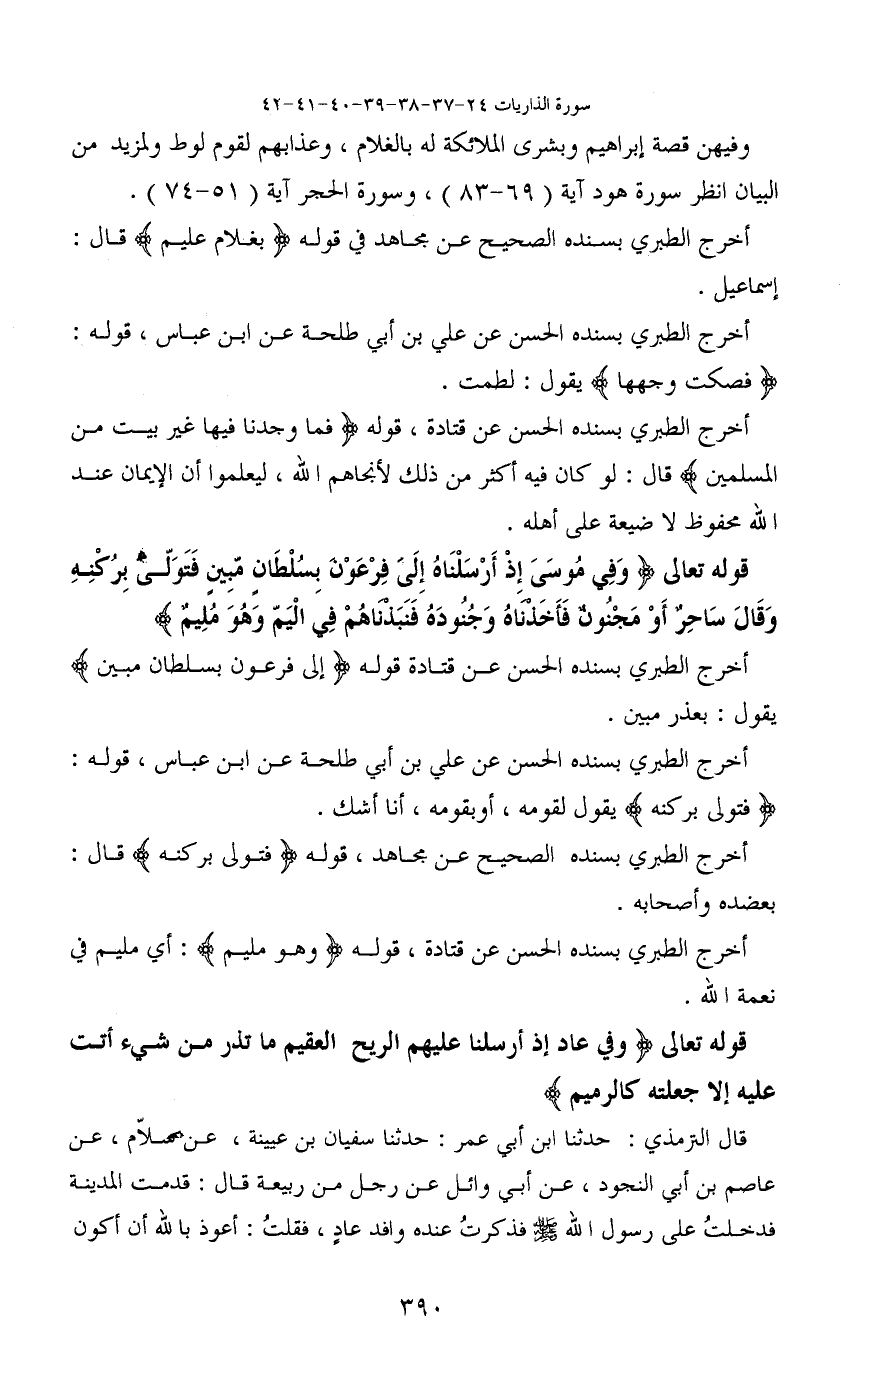 سورة الذاريات ٢٤-٣٧-٣٨-٣٩-٤٠-٤١-٤٢
وفيهن قصة إبراهيم وبشرى الملائكة له بالغلام ، وعذابهم لقوم لوط ولمزيد من
البيان انظر سورة هود آية ( ٦٩-٨٣ ) ، وسورة الحجر آية ( ٥١-٧٤ ) .
أخرج الطبري بسنده الصحيح عن مجاهد في قوله ﴿ بغلام عليم ﴾ قال :
إسماعيل .
أخرج الطبري بسنده الحسن عن علي بن أبي طلحة عن ابن عباس ، قوله :
﴿ فصكت وجهها ﴾ يقول : لطمت .
أخرج الطبري بسنده الحسن عن قتادة ، قوله ﴿ فما وجدنا فيها غير بيت من
المسلمين ﴾ قال : لو كان فيه أكثر من ذلك لأنجاهم الله ، ليعلموا أن الإيمان عند
الله محفوظ لا ضيعة على أهله .
قوله تعالى ﴿ وَفِي مُوسَىَ إِذْ أَرْسَلْنَاهُ إِلَىَ فِرْعَوْنَ بِسُلْطَانٍ مّبِينٍ فَتَوَلّىَ بِرُكْنِهِ
وَقَالَ سَاحِرٌ أَوْ مَجْنُونٌ فَأَخَذْنَاهُ وَجُنُودَهُ فَنَبَذْنَاهُمْ فِي الْيَمّ وَهُوَ مُلِيمٌ ﴾
أخرج الطبري بسنده الحسن عن قتادة قوله ﴿ إلى فرعون بسلطان مبين ﴾
يقول : بعذر مبين .
أخرج الطبري بسنده الحسن عن علي بن أبي طلحة عن ابن عباس ، قوله :
﴿ فتولى بركنه ﴾ يقول لقومه ، أوبقومه ، أنا أشك .
أخرج الطبري بسنده الصحيح عن مجاهد ، قوله ﴿ فتولى بركنه ﴾ قال :
بعضده وأصحابه .
أخرج الطبري بسنده الحسن عن قتادة ، قوله ﴿ وهو مليم ﴾ : أي مليم في
نعمة الله .
قوله تعالى ﴿ وفي عاد إذ أرسلنا عليهم الريح العقيم ما تذر من شيء أتت
عليه إلا جعلته كالرميم ﴾
قال الترمذي : حدثنا ابن أبي عمر : حدثنا سفيان بن عيينة ، عن سلاّم ، عن
عاصم بن أبي النجود ، عن أبي وائل عن رجل من ربيعة قال : قدمت المدينة
فدخلتُ على رسول الله ﷺ فذكرتُ عنده وافد عادٍ ، فقلتُ : أعوذ بالله أن أكون
٣٩٠